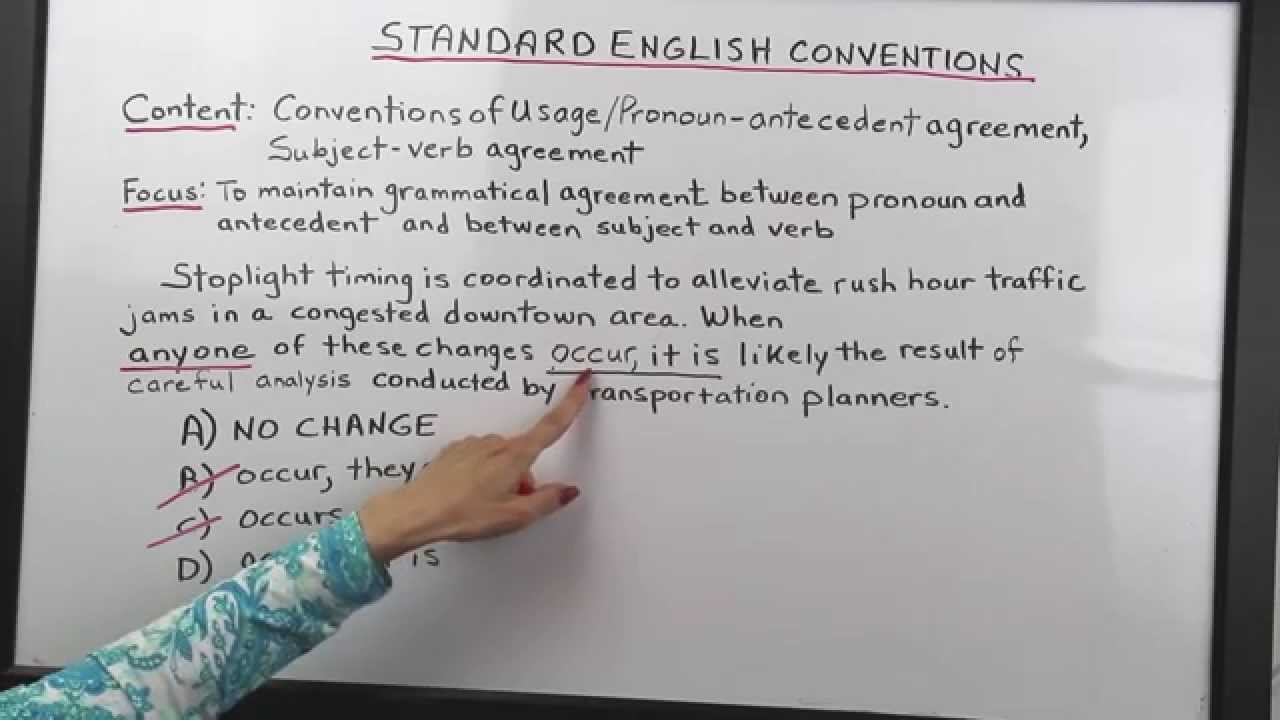 STANDARD ENGLISH CONVENTIONS
Content: Conventions of Usage/Pronoun-antecedent agreement,
Subject-verb agreement
Focus: To maintain grammatical agreement between pronoun and
antecedent and between subject and verb
Stoplight timing is coordinated to alleviate rush hour traffic
jams in a congested downtown area. When
anyone of these changes occur, it is likely the result of
careful analysis conducted by planners.
A) NO CHANGE
B) occur, they
C) occurs
D) is